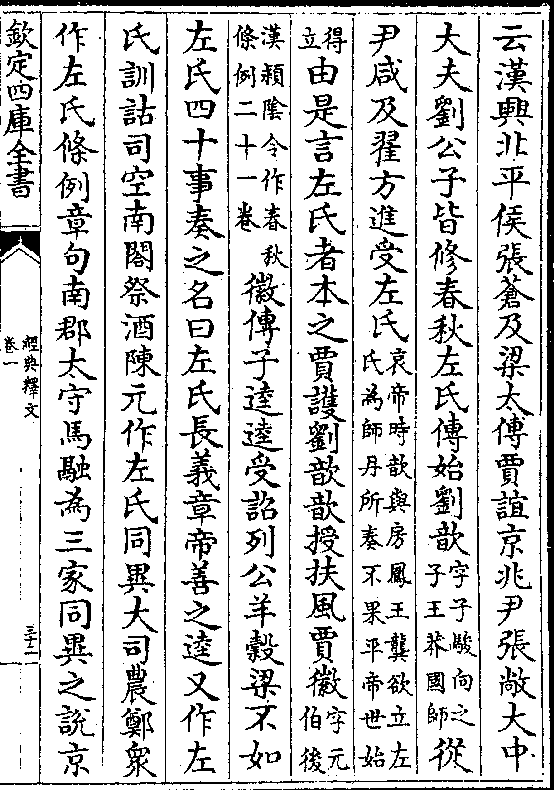 云漢興北平侯張蒼及梁太傅賈誼京兆尹張敞大中
大夫劉公子皆修春秋左氏傳始劉歆字子駿向之子王莽國師從
尹咸及翟方進受左氏哀帝時歆與房鳳王龔欲立左氏為師丹所奏不果平帝世始
得立由是言左氏者本之賈護劉歆歆授扶風賈徽字元伯後
漢潁陰令作春秋條例二十一卷徽傳子逵逵受詔列公羊穀梁不如
左氏四十事奏之名曰左氏長義章帝善之逵又作左
氏訓詁司空南閣祭酒陳元作左氏同異大司農鄭衆
作左氏條例章句南郡太守馬融為三家同異之說京
欽定四庫全書
經典釋文
卷一
三十二